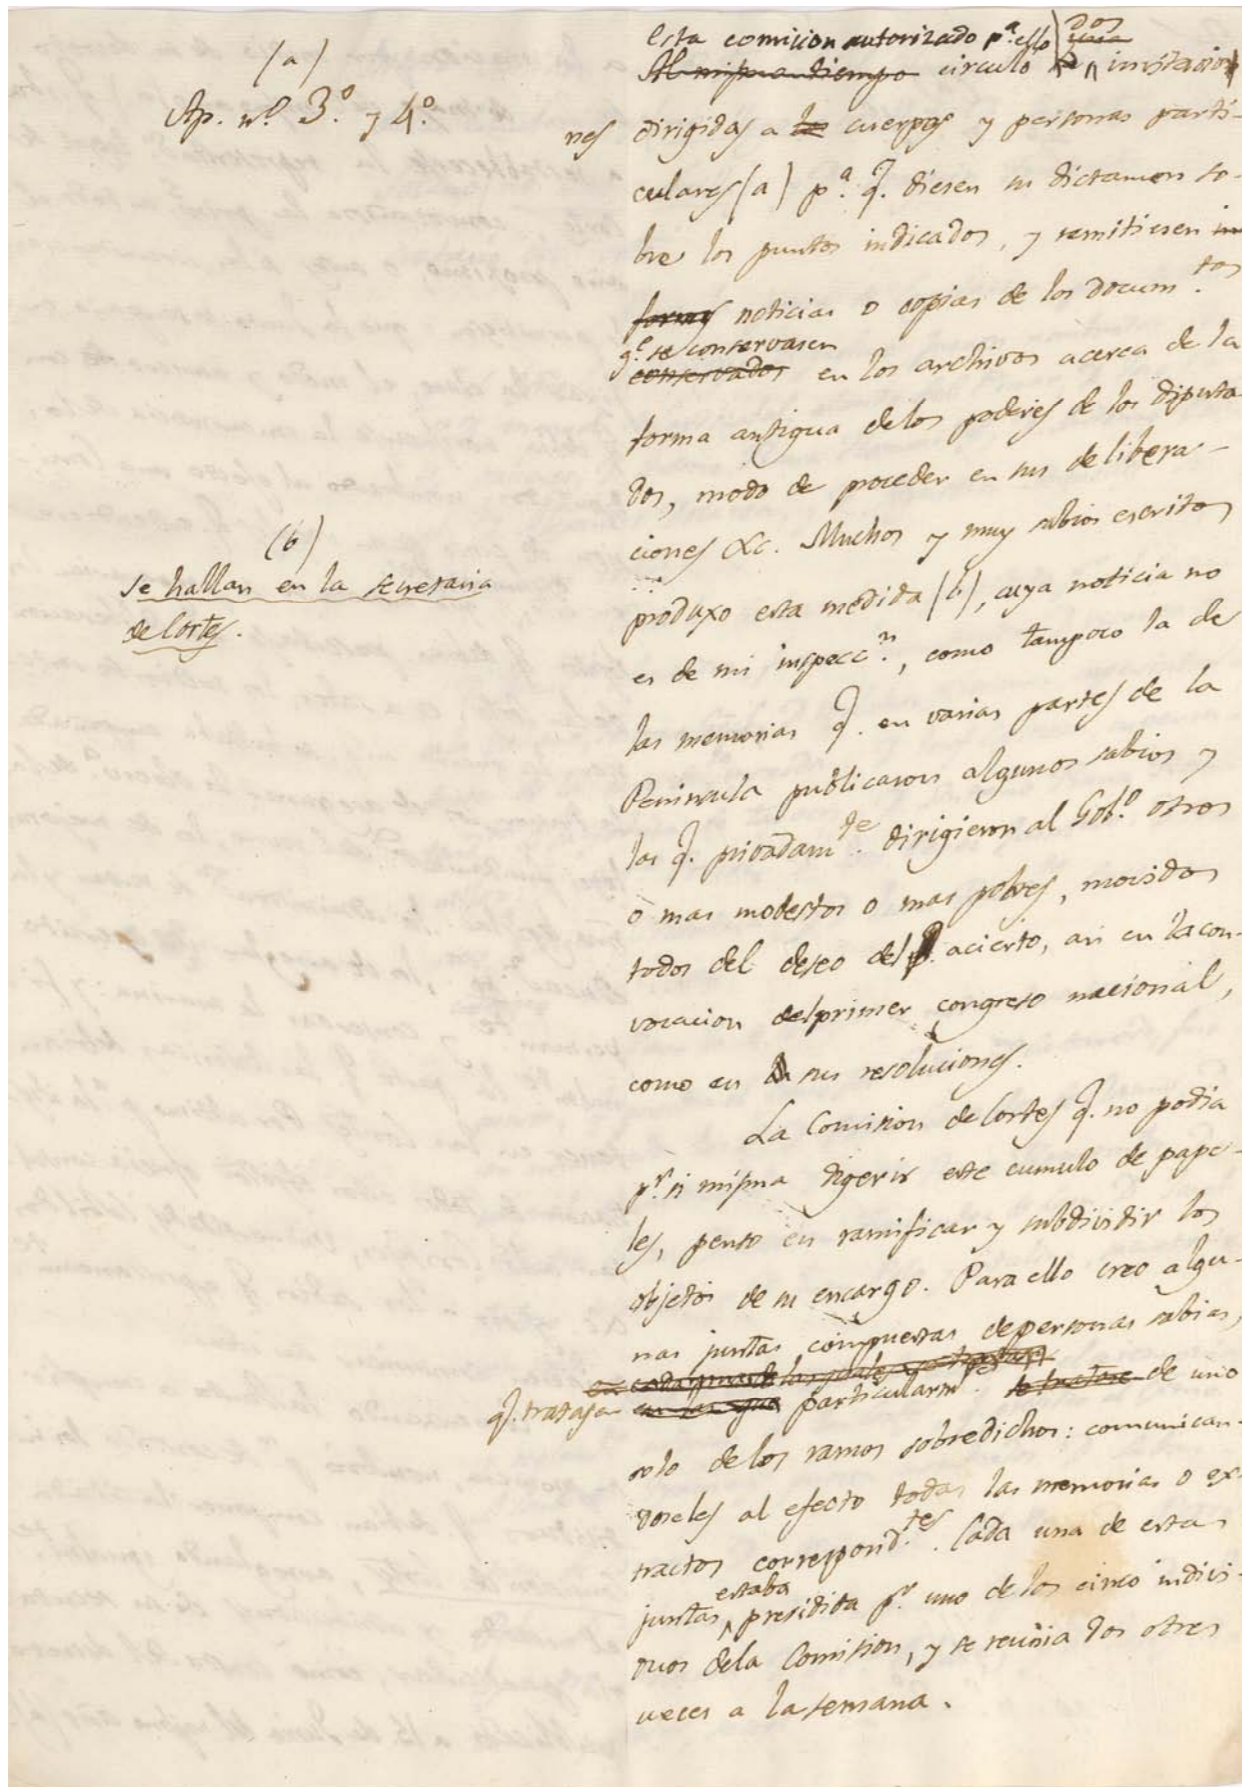 (a)
Ap. nº 3º. y 4º.
Esta comision autorizado pª. ello dos
Al mismo tiempo circuló invitacio
nes dirigidas a los cuerpos y personas parti-
culares (a) pª. q. diesen su dictamen so-
bre los puntos indicados, y remitiesen in
formes noticias o copias de los docum.tos
q.e se conservasen
conservados en los archivos acerca de la
forma antigua delos poderes de los diputa
dos, modo de proceder en sus delibera-
ciones &c. Muchos y muy sabios escritos
(b)
se hallan en la secretaria
de Cortes.
produxo esta medida (b), cuya noticia no
es de mi inspecc.n, como tampoco la de
las memorias q. en varias partes de la
Peninsula publicaron algunos sabios y
las q. privadam.te dirigieron al Gobº. otros
o mas modestos o mas pobres, movidos
todos del deseo del acierto, asi en la con-
vocacion delprimer congreso nacional,
como en sus resoluciones.
La Comision de Cortes q. no podia
p.r si misma digerir este cumulo de pape-
les, penso en ramificar y subdividir los
objetos de su encargo. Para ello creo algu-
nas juntas compuestas depersonas sabias,
en cada una de las quales se tratase
q. tratasen en las que particularm.te se tratase de uno
solo de los ramos sobredichos: comunican-
doseles al efecto todas las memorias o ex-
tractos correspond.tes. Cada una de estas
estaba
juntas presidida p.r uno de los cinco indivi-
duos dela Comision, y se reunia dos otres
veces a la semana.